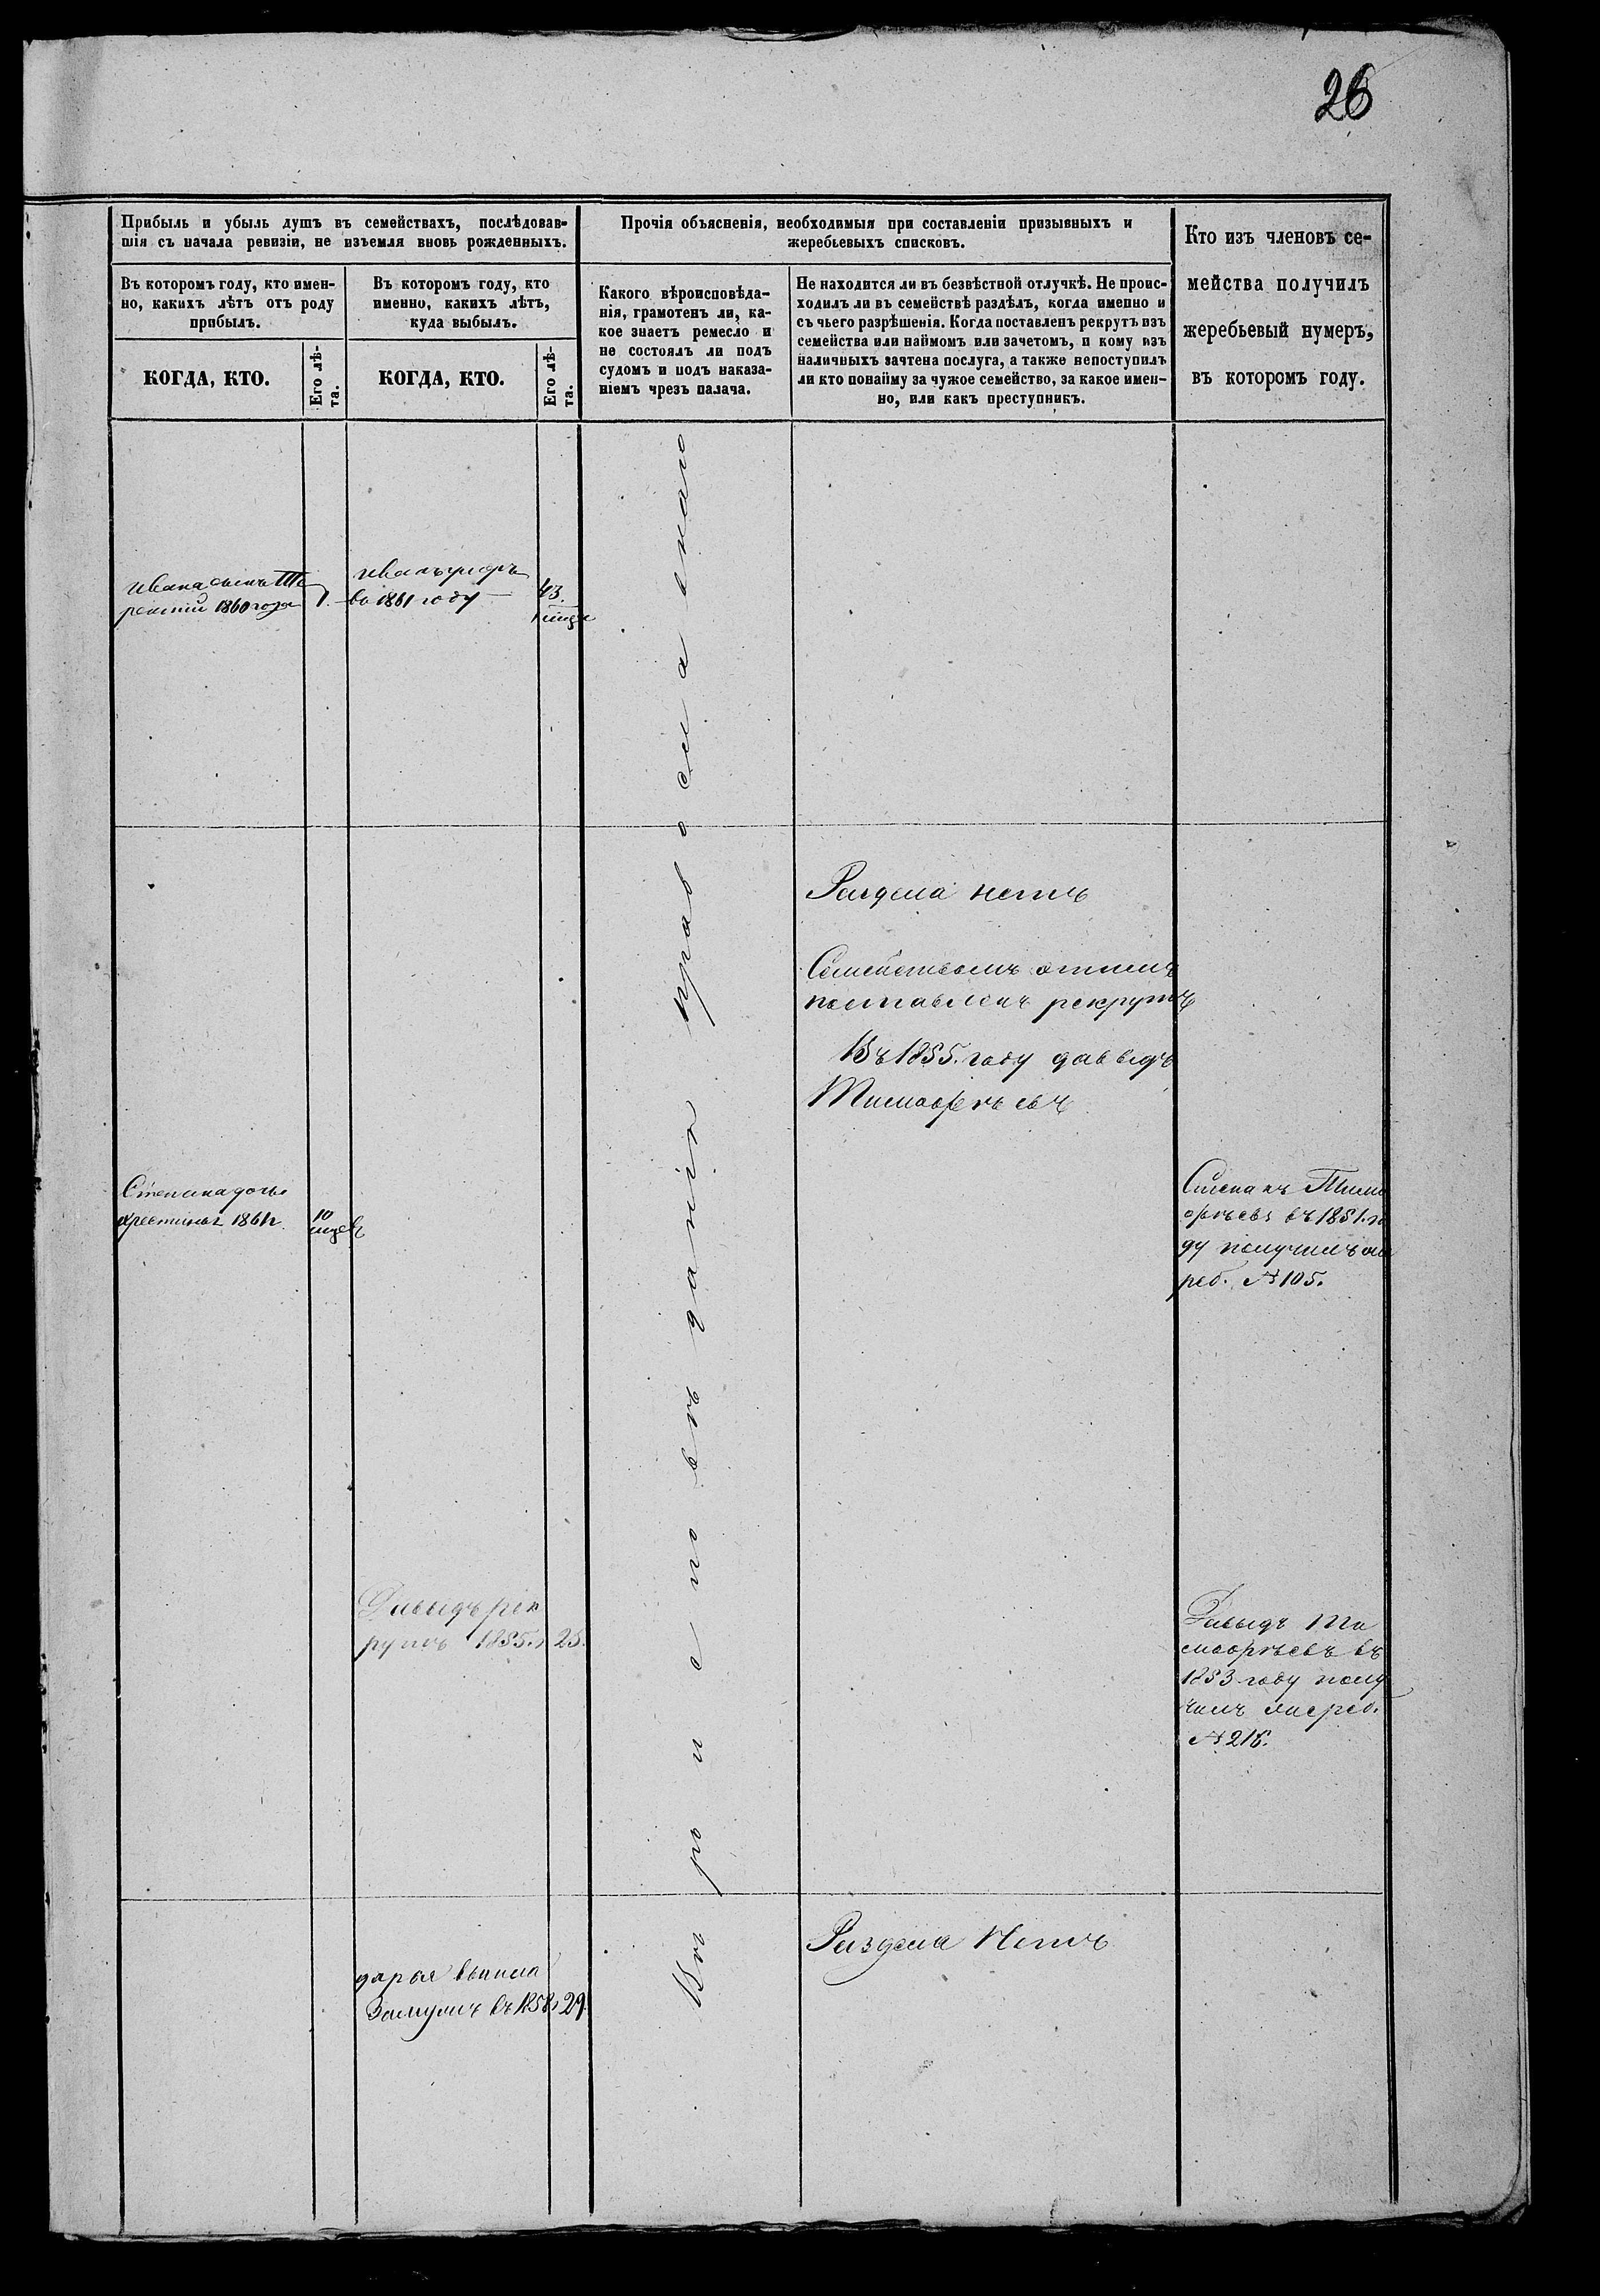 26
Прибыль и убыль душъ въ семействахъ, послѣдовав-
шія съ начала ревизіи, не изъемля вновь рожденныхъ.
Прочія объясненія, необходимыя при составленіи призывныхъ и
жеребьевыхъ списковъ.
Кто изъ членовъ се-
мейства получилъ
жеребьевый нумеръ,
въ которомъ году.
Въ которомъ году, кто имен-
но, какихъ лѣтъ отъ роду
прибылъ.
Въ которомъ году, кто
именно, какихъ лѣтъ,
куда выбылъ.
Какого вѣроисповѣда-
нія, грамотенъ ли, ка-
кое знаетъ ремесло и
не состоялъ ли подъ
судомъ и подъ наказа-
ніемъ чрезъ палача.
Не находится ли въ безвѣстной отлучкѣ. Не проис-
ходилъ ли въ семействѣ раздѣлъ, когда именно и
съ чьего разрѣшенія. Когда поставленъ рекрутъ изъ
семейства или наймомъ или зачетомъ, и кому изъ
наличныхъ зачтена послуга, а также непоступилъ
ли кто понайму за чужое семейство, за какое имен-
но, или какъ преступникъ.
КОГДА, КТО.
Его лѣ-
та.
КОГДА, КТО.
Его лѣ-
та.
Ивана сынъ Те
рентий 1860 года
1.
Иванъ умеръ
во 1861 году
43.
Раздела нетъ
Семействомъ этимъ
поставленъ рекрутъ
Въ 1855. году давыдъ
Тимофѣевъ
Степана дочь
Хрестинья 1861 г.
10
мцев
Степанъ Тимо
офѣевъ въ 1851. го
ду получилъ же
реб. № 105.
Давыдъ рек
рутъ 1855. г
25.
Давыдъ Ти
моофѣевъ въ
1853 году полу
чилъ жереб.
№ 216.
Раздела Нетъ
дарья вышла
Замужъ въ 1858 г
29
Вѣроисповѣданія православнаго